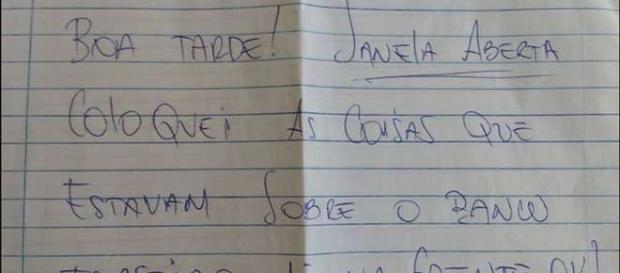 BOA TARDE! JANELA ABERTA
COLOQUEI AS COISAS QUE
ESTAVAM SOBRE O BANCO